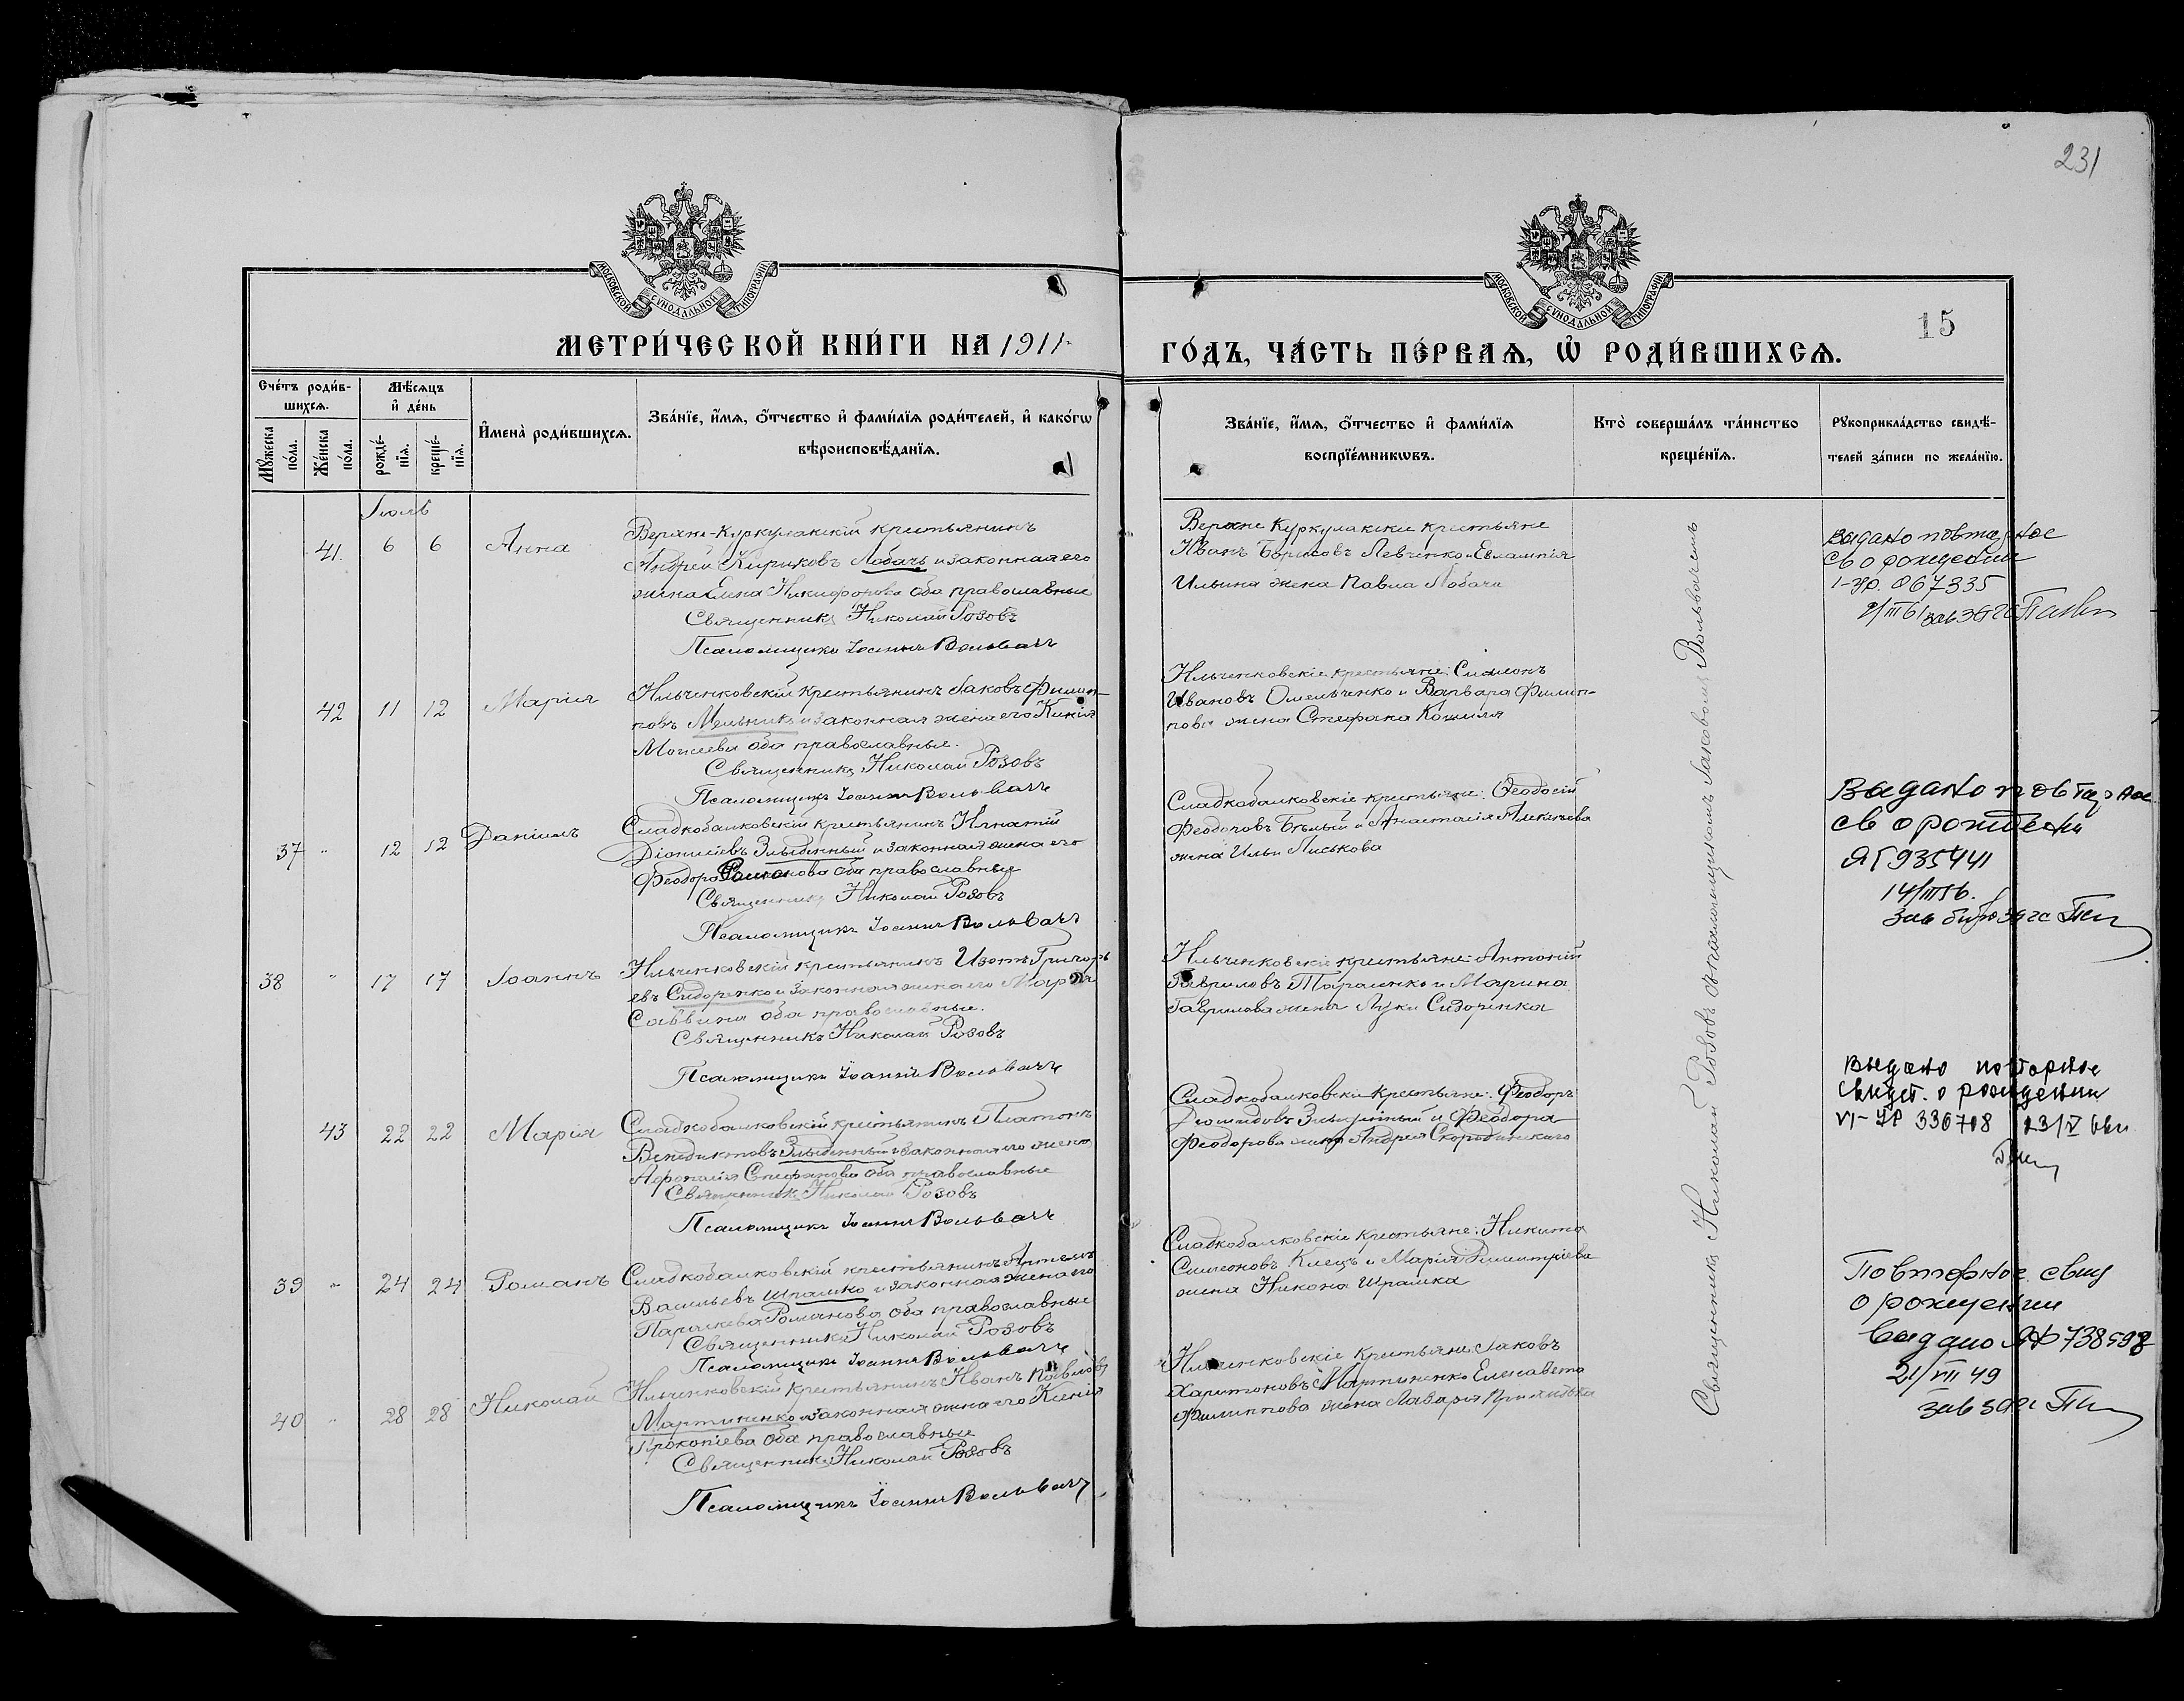 231
15
МОСКОВСКОЙ СѴНОДАЛЬНОЙ ТИПОГРАФІИ
МОСКОВСКОЙ СѴНОДАЛЬНОЙ ТИПОГРАФІИ
МЕТРИ́ЧЕСКОЙ КНИ́ГИ НА 1911
ГО́ДЪ, ЧА́СТЬ ПЕ́РВАѦ, Ѡ҆ РОДИ́ВШИХСѦ.
Сче́тъ роди́в-
шихсѧ.
Мѣ́сѧцъ
и҆ де́нь
Мꙋ́жеска
по́ла.
Же́нска
по́ла.
рожде́-
нїѧ.
креще́-
нїѧ.
И҆мена̀ роди́вшихсѧ.
Зва́нїе, и҆́мѧ, ѻ҆́тчество и҆ фами́лїѧ роди́телей, и҆ како́гѡ
вѣроисповѣ́данїѧ.
Зва́нїе, и҆́мѧ, ѻ҆́тчество и҆ фами́лїѧ
воспрїе́мникѡвъ.
Кто̀ соверша́лъ та́инство
креще́нїѧ.
Рꙋкоприкла́дство свидѣ́-
телей за́писи по жела́нїю.
Іюль
41. 6 6 Анна
Верхне-Куркулакскій крестьянинъ
Андрей Кириковъ Лобачъ и законная его
жена Елена Никифорова оба православные
Священникъ Николай Розовъ
Псаломщикъ Іоаннъ Вольвачъ
Верхне Куркулакскіе крестьяне
Иванъ Борисовъ Левченко и Евлампія
Ильина жена Павла Лобача
Выдано повторное
св о рождении
067335
42 11 12 Марія
Ильченковскій крестьянинъ Іаковъ Филип-
повъ Мельникъ и законная жена его Ксенія
Моисеева оба православные.
Священникъ Николай Розовъ
Псаломщикъ Іоаннъ Вольвачъ
Ильченковскіе крестьяне: Симеонъ
Ивановъ Омельченко и Варвара Филип-
пова жена Стефана Кошеля
37 " 12 12 Даніилъ
Сладкобалковскій крестьянинъ Игнатій
Діонисіевъ Злыденный и законная жена его
Феодора Романова оба православные
Священникъ Николай Розовъ
Псаломщикъ Іоаннъ Вольвачъ
Сладкобалковскіе крестьяне: Феодосій
Феодоровъ Бѣлый и Анастасія Алексѣева
жена Ильи Лиськова
Выдано повторное
св о рождении
ЯГ 935441
38 " 17 17 Іоаннъ
Ильченковскій крестьянинъ Изотъ Григорь
евъ Сидоренко и законная жена его Марѳа
Саввина оба православные.
Священникъ Николай Розовъ
Псаломщикъ Іоаннъ Вольвачъ
Ильченковскіе крестьяне: Антоній
Гавриловъ Тараненко и Марина
Гаврилова жена Луки Сидоренка
43 22 22 Марія
Сладкобалковскій крестьянинъ Платонъ
Венедиктовъ Злыденный и законная его жена
Стефанова оба православные
Священникъ Николай Розовъ
Псаломщикъ Іоаннъ Вольвачъ
Сладкобалковскіе крестьяне: Феодоръ
Діомидовъ Злыденный и Феодора
Феодорова жена Андрея Скородинскаго
Выдано повторное
свидет. о рождении
336708 23/V
39 " 24 24 Романъ
Сладкобалковскій крестьянинъ Артемъ
Васильевъ Шрамко и законная жена его
Параскева Романова оба православные
Священникъ Николай Розовъ
Псаломщикъ Іоаннъ Вольвачъ
Сладкобалковскіе крестьяне: Никита
Симеоновъ Клецъ и Марія Димитріева
жена Никона Шрамка
Повторное свид
о рождении
выдано 738598
21/VII 49
40 " 28 28 Николай
Ильченковскій крестьянинъ Иванъ Павловъ
Мартиненко и законная жена его Ксенія
Прокопіева оба православные
Священникъ Николай Розовъ
Псаломщикъ Іоаннъ Вольвачъ
Ильченковскіе крестьяне: Іаковъ
Харитоновъ Мартиненко Елисавета
Филиппова жена Лазаря
Священникъ Николай Розовъ съ псаломщикомъ Іаковомъ Вольвачемъ